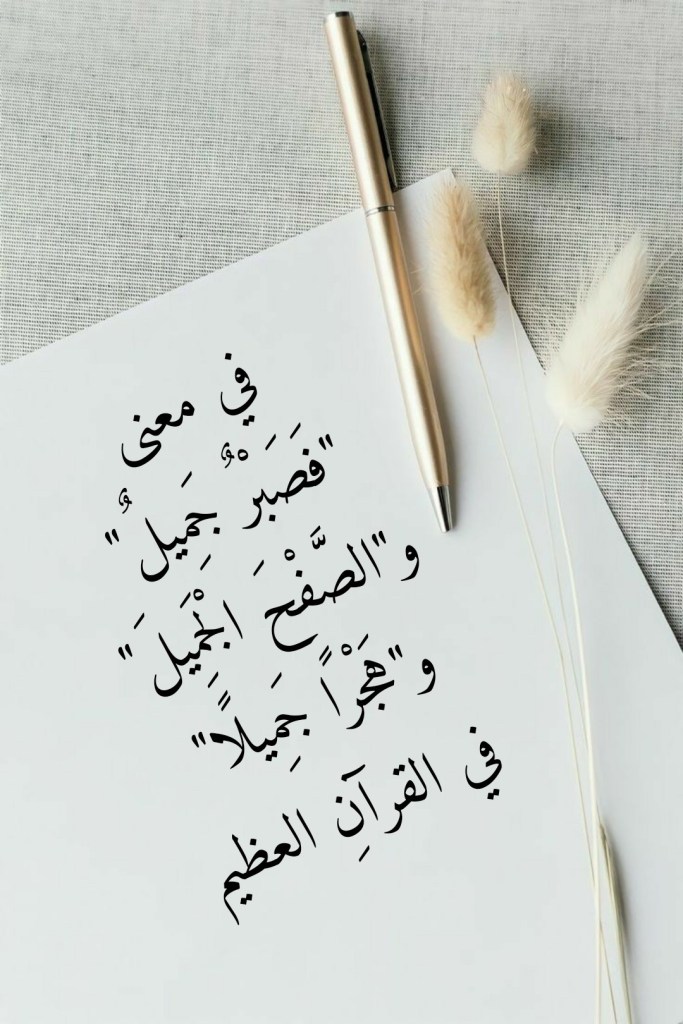 في معنى
"فَصَبَرْ ٌ جَمِيل ٌ"
و"الصَّفْحَ الْجَمِيلَ"
و"هَجْرًا جَمِيلًا"
في القرآنِ العظيم